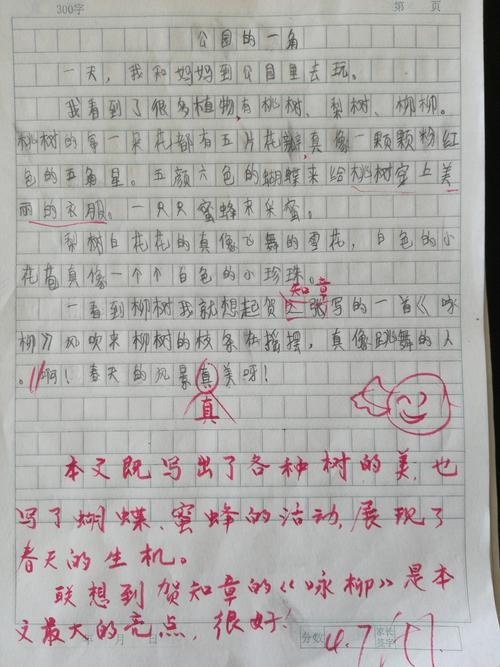 300字
第 页
公园的一角
一天,我和妈妈到公园里去玩。
我看到了很多植物,有桃树、梨树、柳柳。
桃树的每一朵花都有五片花瓣,真像一颗颗粉红
色的五角星。五颜六色的蝴蝶来给桃树穿上美
丽的衣服。一只只蜜蜂来采蜜。
梨树白花花的真像飞舞的雪花,白色的小
花苞真像一个个白色的小珍珠。
知章
一看到柳树我就想起贺之张写的一首《咏
柳》风吹来柳树的枝条在摇摆,真像跳舞的人
。啊!春天的风景真美呀!
真
本文既写出了各种树的美,也
写了蝴蝶、蜜蜂的活动,展现了
春天的生机。
联想到贺知章的《咏柳》是本
文最大的亮点,很好!
年 月 日
分数
家长签字
4.7